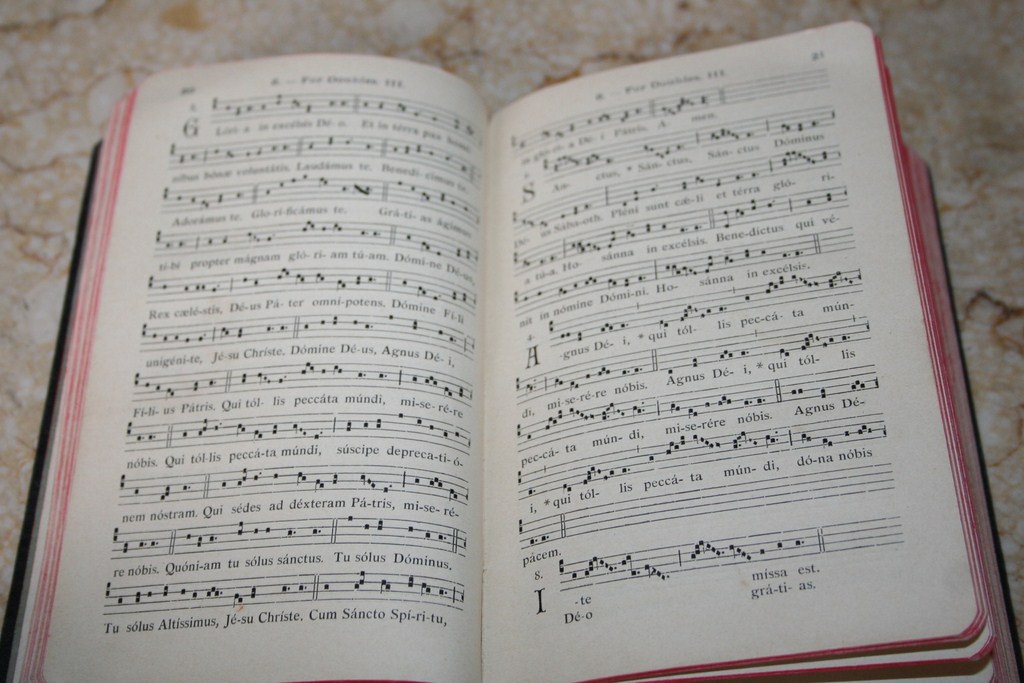 2. — For Doubles. III.
G Lóri- a in excélsis Dé- o. Et in térra pax homí-
nibus bónæ voluntátis. Laudámus te. Benedí- cimus te.
Adorámus te. Glo- ri-ficámus te. Grá-ti- as ágimus
tí-bi propter mágnam gló- ri- am tú-am. Dómi-ne Dé-us,
Rex cæléstis, Dé-us Pá- ter omní-potens. Dómine Fí-li
unigéni-te, Jé-su Chríste. Dómine Dé-us, Agnus Dé- i,
Fí-li- us Pátris. Qui tól- lis peccáta múndi, mi-se-ré-re
nóbis. Qui tól-lis peccá-ta múndi, súscipe depreca-ti-ó-
nem nóstram. Qui sédes ad déxteram Pá-tris, mi-se- ré-
re nóbis. Quóni-am tu sólus sánctus. Tu sólus Dóminus.
Tu sólus Altíssimus, Jé-su Chríste. Cum Sáncto Spí-ri-tu,
2. — For Doubles. III.
21
in gló-ri- a De- i Pátris. A- men.
S An- ctus, * Sán- ctus, Sán- ctus Dóminus
De- us Sába-oth. Pléni sunt cæ-li et térra gló- ri-
a tú-a. Ho- sánna in excélsis. Bene-díctus qui vé-
nit in nómine Dómi-ni. Ho- sánna in excélsis.
A -gnus Dé- i, * qui tól- lis pec-cá- ta mún-
di, mi-se-ré-re nóbis. Agnus Dé- i, * qui tól- lis
pec-cá- ta mún- di, mi-se-rére nóbis. Agnus Dé-
i, * qui tól- lis peccá- ta mún- di, dó-na nóbis
pácem.
8.
I -te missa est.
Dé-o grá-ti- as.